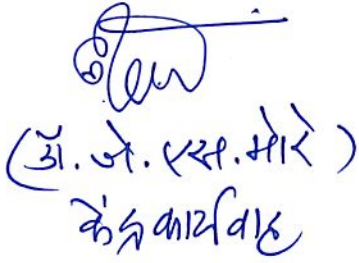 (डॉ. जे. एस. मोरे)
केंद्रकार्यवाह